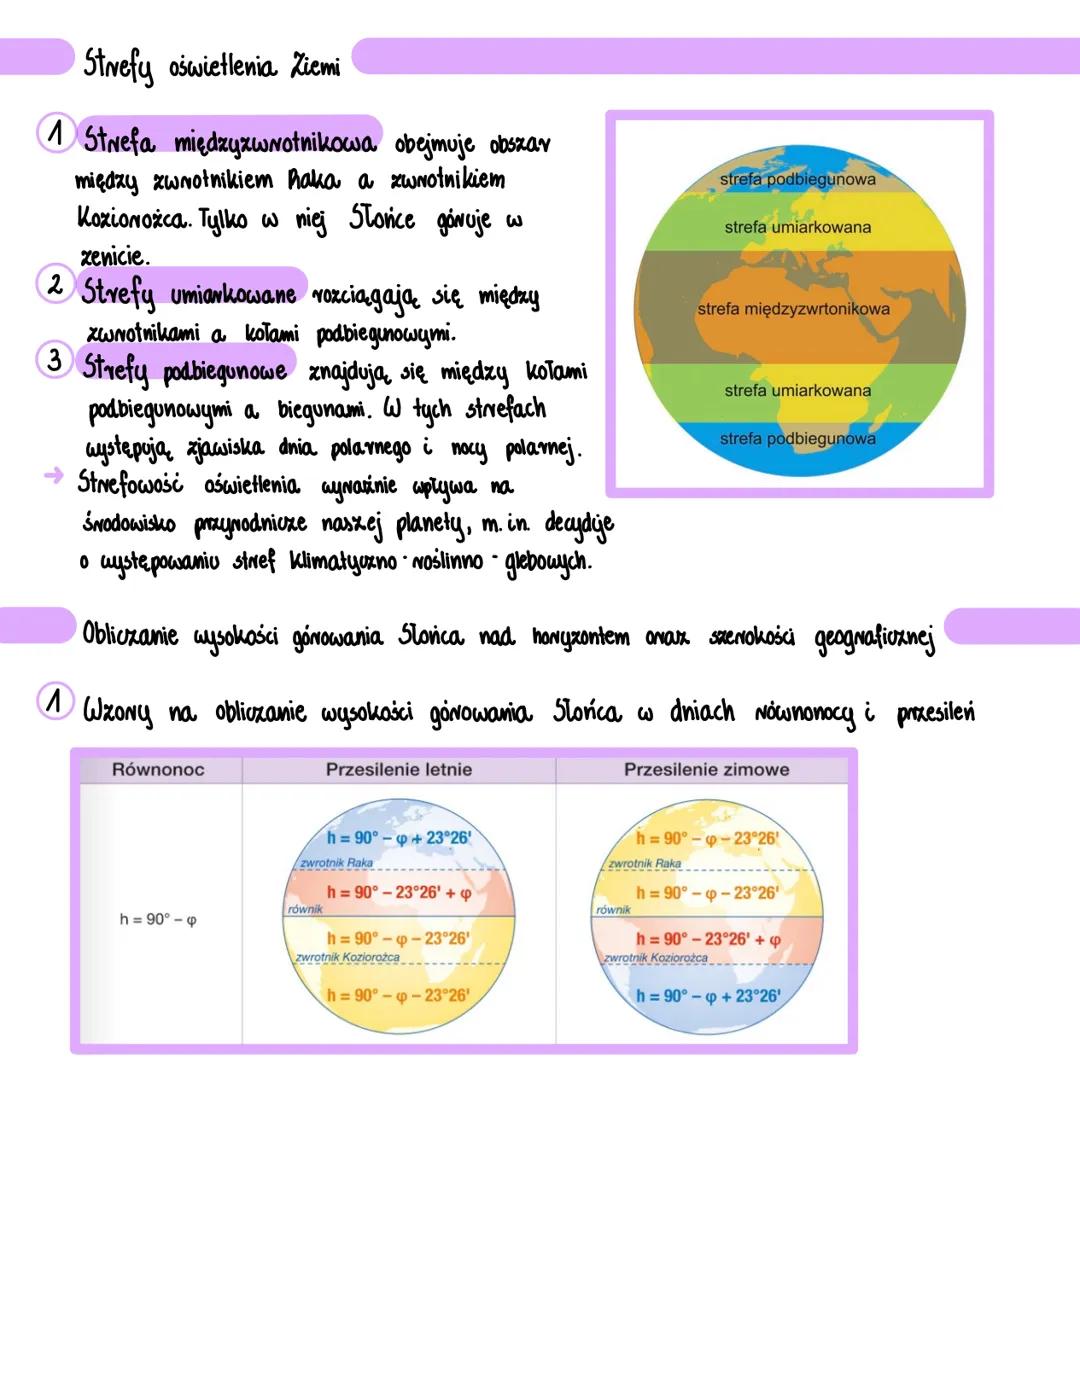 Strefy oświetlenia Ziemi
1 Strefa międzyzwrotnikowa obejmuje obszar
między zwrotnikiem Raka a zwrotnikiem
Koziorożca. Tylko w niej Słońce góruje w
zenicie.
2 Strefy umiarkowane rozciągają się między
zwrotnikami a kołami podbiegunowymi.
3 Strefy podbiegunowe znajdują się między kołami
podbiegunowymi a biegunami. W tych strefach
występują zjawiska dnia polarnego i nocy polarnej.
→ Strefowość oświetlenia wyraźnie wpływa na
środowisko przyrodnicze naszej planety, m.in. decyduje
o występowaniu stref klimatyczno - roślinno - glebowych.
strefa podbiegunowa
strefa umiarkowana
strefa międzyzwrtonikowa
strefa umiarkowana
strefa podbiegunowa
Obliczanie wysokości górowania Słońca nad horyzontem oraz szerokości geograficznej
1 Wzory na obliczanie wysokości górowania Słońca w dniach równonocy i przesileń
Równonoc
Przesilenie letnie
Przesilenie zimowe
h = 90° – φ
h = 90° – φ + 23°26'
zwrotnik Raka
h = 90° – 23°26' + φ
równik
h = 90° – φ – 23°26'
zwrotnik Koziorożca
h = 90° – φ – 23°26'
h = 90° – φ – 23°26'
zwrotnik Raka
h = 90° – φ – 23°26'
równik
h = 90° – 23°26' + φ
zwrotnik Koziorożca
h = 90° – φ + 23°26'